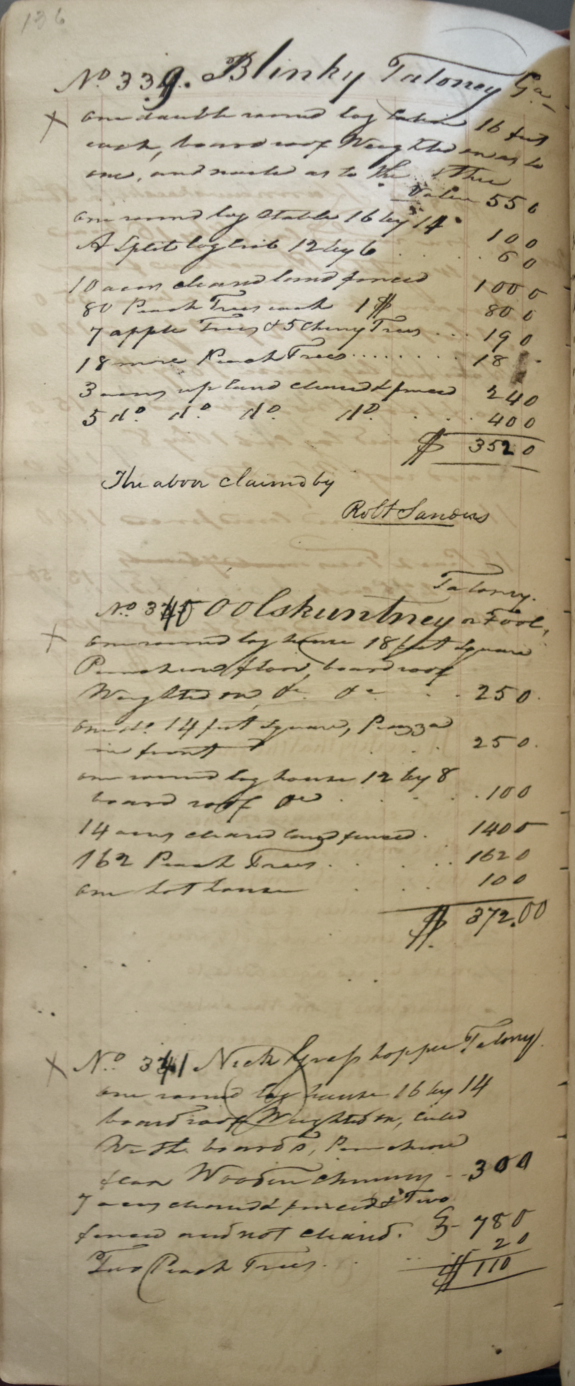 136
No 339. Blinky Taloney Ga
X one double round log Cabin 16 feet
each, board roof Weighted on as to
one, and nailed as to the other
Value 550
one round log Stable 16 by 14 100
A Split log Crib 12 by 6 . . . 60
10 acres cleared land fenced 1000
80 Peach Trees each 1$ 800
7 apple Trees & 5 Cherry Trees ... 190
18 more Peach Trees........ 18
3 acres upland cleared & fenced 240
5 do. do. do. do. . . . 400
$ 3520
The above claimed by
Robt Sanders
Taloney.
No 340 Oolskuntney or Fool,
X one round log house 18 feet square
Puncheon floor, board roof
Weighted on, &c &c . . 250.
one do. 14 feet square, Piazza
in front . . . 250.
one round log house 12 by 8
board roof &c . . . . 100
14 acres cleared land fenced . 1400
162 Peach Trees . . . . . 1620
one hot house . . . 100
$ 372.00
X No 341 Nick Grass hopper Taloney
one round log house 16 by 14
board roof Weighted on,
With boards, Puncheon
floor Wooden Chimney -- 300
7 acres cleared & fenced & Two
fenced and not cleared. 780
Two Peach Trees. . . . 20
$ 110